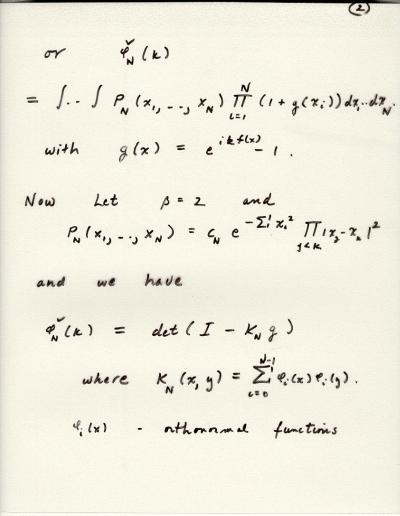 ②
or φ̌_N(k)
= ∫·· ∫ P_N(x_1, --, x_N) ∏_{i=1}^{N} (1 + g(x_i)) dx_1··dx_N.
with g(x) = e^{ikf(x)} - 1.
Now Let β = 2 and
P_N(x_1, --, x_N) = c_N e^{-Σ x_i^2} ∏_{j<k} |x_j - x_k|^2
and we have
φ̌_N(k) = det(I - K_N g)
where K_N(x, y) = Σ_{i=0}^{N-1} φ_i(x) φ_i(y).
φ_i(x) - orthonormal functions